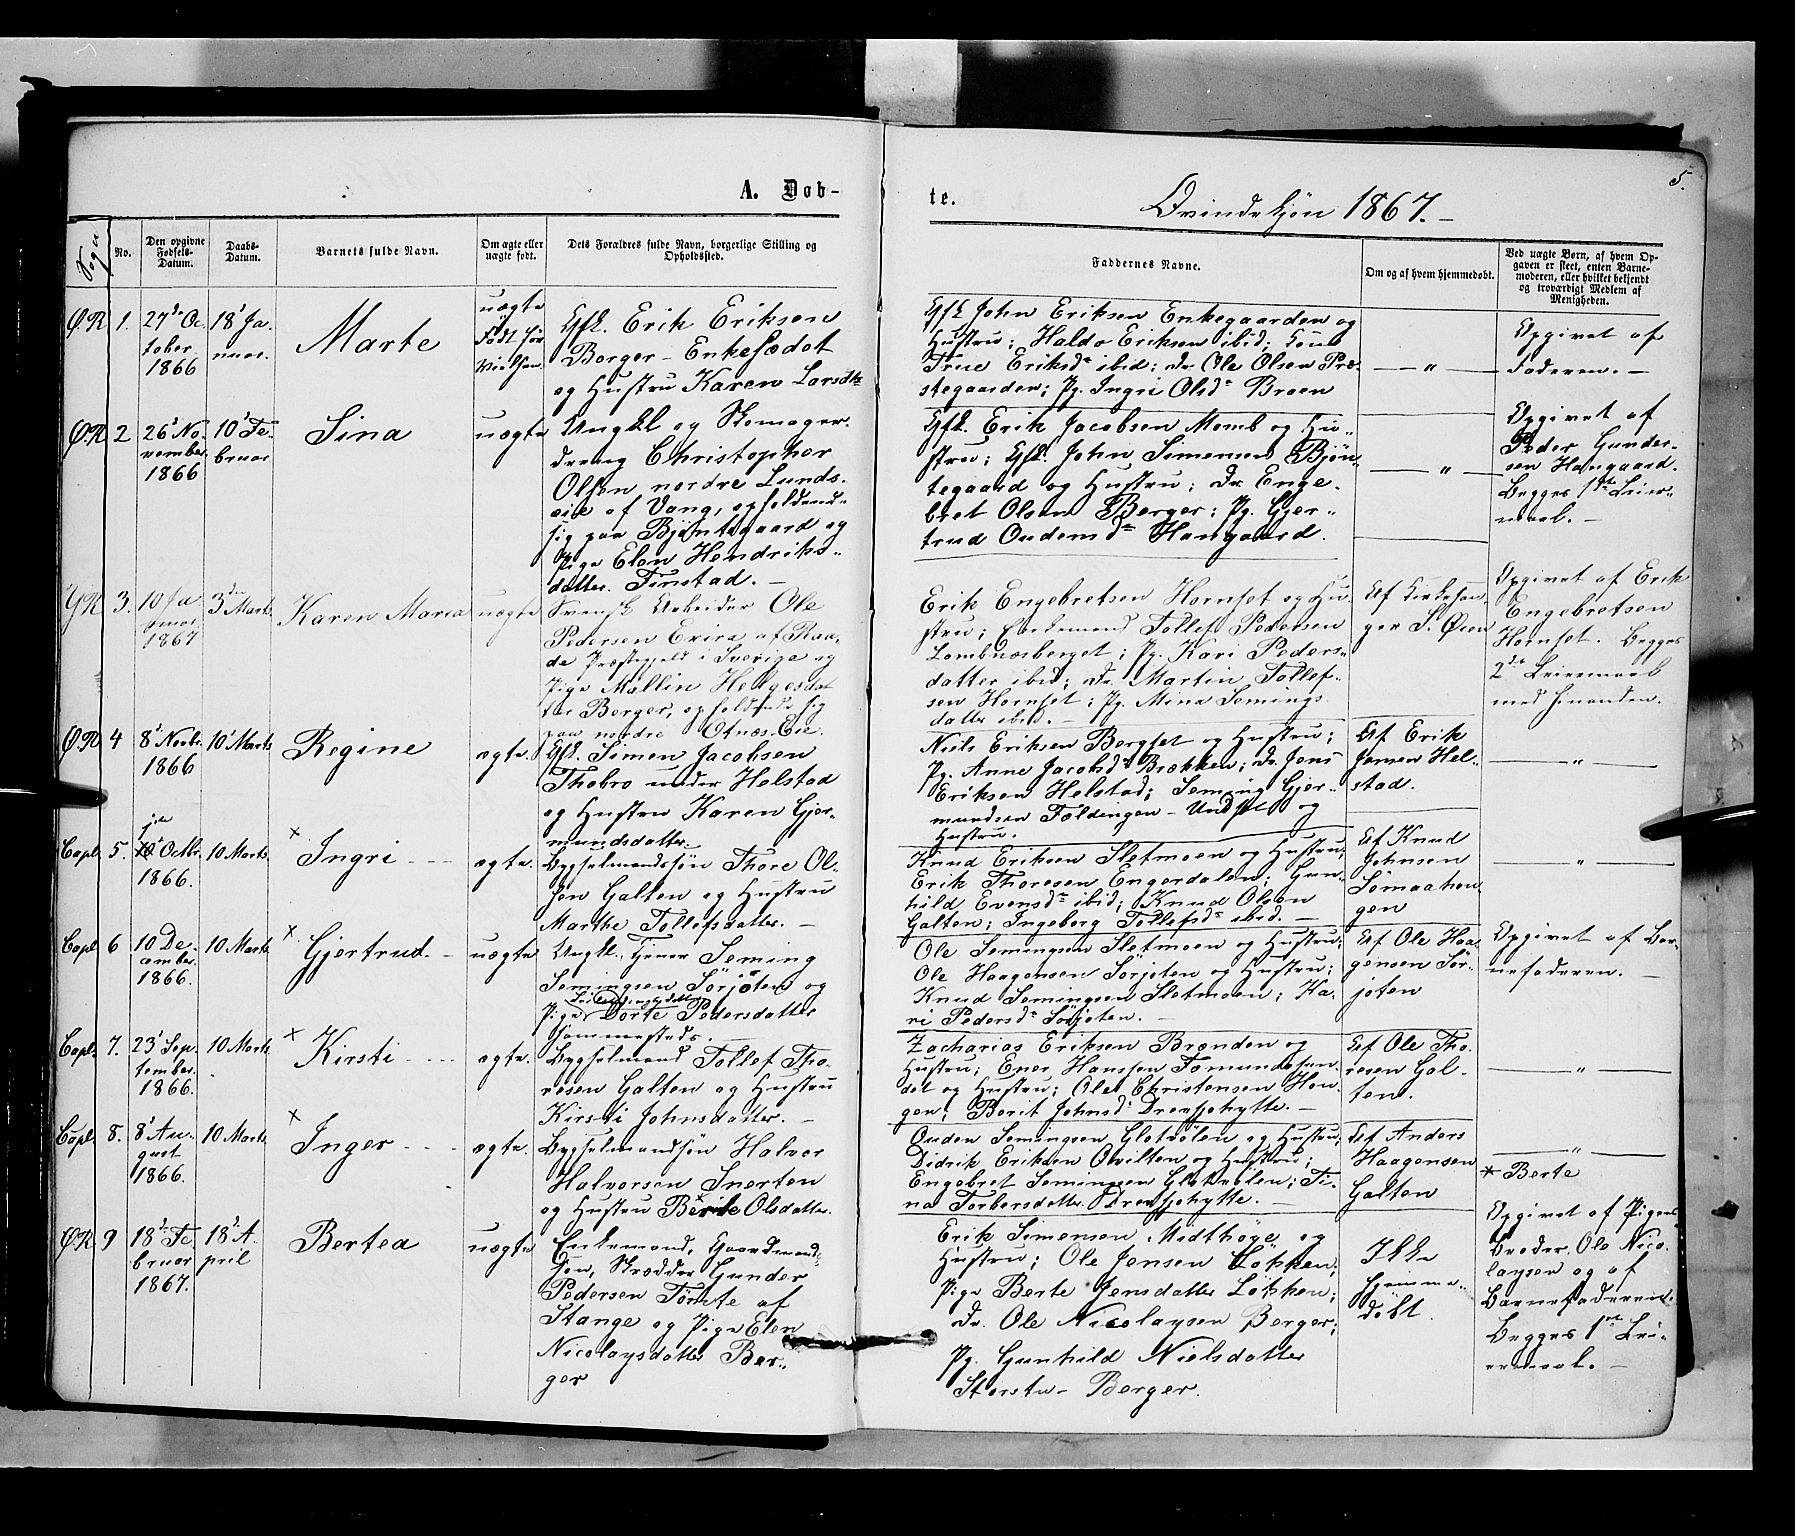 5.
A. Døb-
te.
Qvindekjøn 1867.-
Sogn
No.
Den opgivne
Fødsels-
Datum.
Daabs-
Datum.
Barnets fulde Navn.
Om ægte eller
uægte født.
Dets Forældres fulde Navn, borgerlige Stilling og
Opholdssted.
Faddernes Navne.
Om og af hvem hjemmedøbt.
Ved uægte Børn, af hvem Op-
gaven er skeet, enten Barne-
moderen, eller hvilket bekjendt
og troværdigt Medlem af
Menigheden.
Ø.R
1.
27de Oc
tober
1866
18de Ja
nuar.
Marte
uægte
Født før
Vielsen
Gfl. Erik Eriksen
Berger - Enkesædet
og Hustru Karen Larsdtr
Gfl John Eriksen Enkegaarden og
Hustru; Haldo Eriksen ibid;
True Eriksdr ibid; Dr. Ole Olsen Præ-
stegaarden; Pg. Ingri Olsdr Broen
"
Opgivet af
Faderen. -
Ø.R
2
26de No-
vember
1866
10de Fe-
bruar
Sina
uægte
Ungkl og Skomager-
dreng Christopher
Olsen nordre Lunds-
eie af Vang, opholdend-
sig paa Bjøntegaard og
Pige Elen Hendriks-
datter Finstad. -
Gfl. Erik Jacobsen Momb og Hu-
stru; Gfl. John Simensen Bjøn-
tegaard og Hustru; Dr. Enge-
bret Olsen Berger; Pg. Gjer-
trud Oudensdr Haugaard.
"
Opgivet af
Peder Gunder-
sen Haugaard.
Begges 1ste Leier-
maal. -
Y.R
3.
10 Ja
nuar
1867
3de Marts
Karen Maria
uægte
Svensk Arbeider Ole
Pedersen Exira af Raa-
da Præstegjeld i Sverige og
Pige Mallin Helgesdat
ter Berger, opholdende sig
paa nordre Otnæs Eie.
Erik Engebretsen Hornset og Hu-
stru; Enkemand Tollef Pedersen
Lombnæsberget; Pg. Kari Peders-
datter ibid; Dr. Martin Tollef-
sen Hornset; Pg. Mina Semings
datter ibid. -
Af Kirkesan-
ger S. Øien
Opgivet af Erik
Engebretsen
Hornset. Begges
2de Leiermaal
med hinanden.
Ø.R
4
8de Novbr.
1866
10de Marts
Regine
ægte.
Gfl. Simen Jacobsen
Thobro under Helstad
og Hustru Karen Gjer-
mundsdatter.
Niels Eriksen Bergset og Hustru;
Pg. Anne Jacobsdr Brækken; Dr. Jens
Eriksen Helstad; Seming Gjer-
mundsen Foldingen - Undset og
Hustru.
Af Erik
Jensen Hel-
stad.
"
Capl.
5.
Octbr.
1866.
10 Marts
× Ingri
ægte.
Bygselmandssøn Thore Ol-
sen Galten og Hustru
Marthe Tollefsdatter. -
Knud Eriksen Sletmoen og Hustru;
Erik Thoresen Engerdalen; Gun-
hild Evensdr ibid; Knud Olsen
Galten; Ingeborg Tollefsdr ibid. -
Af Knud
Johnsen
Sømaahau
gen
"
Capl
6
10 De-
cember
1866.
10 Marts
× Gjertrud.
uægte
Ungkl. Tjener Seming
Semingsen Sørjoten og
Pige Dorte Pedersdatter
Sømmestads.
Ole Semingsen Sletmoen og Hustru;
Ole Haagensen Sørjoten og Hustru;
Knud Semingsen Sletmoen; Ka-
ri Pedersdr Sørjoten. -
Af Ole Haa-
gensen Sør-
joten
Opgivet af Bar-
nefaderen. -
Capl.
7.
23de Sep
tember.
1866.
10 Marts
× Kirsti
ægte.
Bygselmand Tollef Tho-
resen Galten og Hustru
Kirsti Johnsdatter. -
Zacharias Eriksen Brænden og
Hustru; Ener Hansen Fæmundsun-
det og Hustru; Ole Christensen Hau-
gen; Berit Johnsdr Drevsjøhytte. -
Af Ole Tho-
resen Gal-
ten.
"
Capl.
8.
8de Au-
gust
1866.
10 Marts
× Inger
ægte.
Bygselmandssøn Halvor
Halvorsen Snerten
og Hustru Berte Olsdatter.
Ouden Semingsen Gløtvolen og Hustru;
Didrik Eriksen Qvilten og Hustru;
Engebret Semingsen Gløtvolen; Ti-
na Torbersdatter Drevsjøhytte. -
Af Anders
Haagensen
Galten
"
× Berte
Ø.R
9
18de Fe
bruar
1867.
18de A-
pril
Bertea
uægte
Enkemand, Gaardmands-
søn, Skrædder Gunder
Pedersen Tømte af
Stange og Pige Elen
Nicolaysdatter Ber-
ger
Erik Simensen Midthøge og
Hustru; Ole Jensen Løkken;
Pige Berte Jensdatter Løkken;
Dr. Ole Nicolaysen Berger;
Pg. Gunhild Nielsdatter
Storstu - Berger.
Ikke
hjemme-
døbt.
Opgivet af Pigens
Broder Ole Nico-
laysen og af
Barnefaderen.
Begges 1ste Lei-
ermaal. -